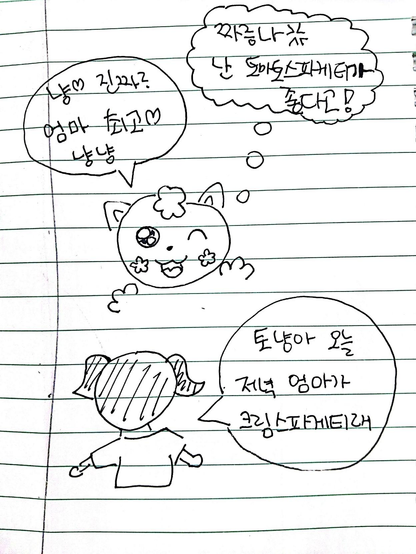 짜릉나 쟈
난 토마토스파게티가
좋다고!
냥♡ 진짜루
엄마 최고♡
냥냥
토냥아 오늘
저녁 엄마가
크림스파게티래